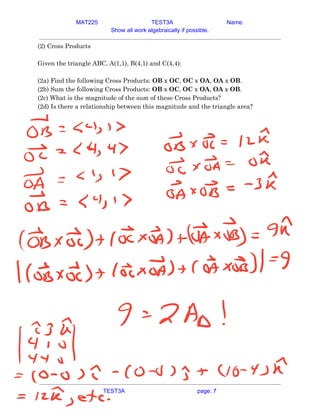 MAT225 TEST3A Name:
Show all work algebraically if possible.
(2) Cross Products
Given the triangle ABC, A(1,1), B(4,1) and C(4,4):
(2a) Find the following Cross Products: OB x OC, OC x OA, OA x OB.
(2b) Sum the following Cross Products: OB x OC, OC x OA, OA x OB.
(2c) What is the magnitude of the sum of these Cross Products?
(2d) Is there a relationship between this magnitude and the triangle area?
OB = <4,1>
OC = <4,4>
OA = <1,1>
OB = <4,1>
OB x OC = 12k̂
OC x OA = 0k̂
OA x OB = -3k̂
(OB x OC) + (OC x OA) + (OA x OB) = 9k̂
|(OB x OC) + (OC x OA) + (OA x OB)| = 9
9 = 2A△ !
| î ĵ k̂ |
| 4 1 0 |
| 4 4 0 |
= (0-0)î - (0-0)ĵ + (16-4)k̂
= 12k̂, etc.
TEST3A page: 7